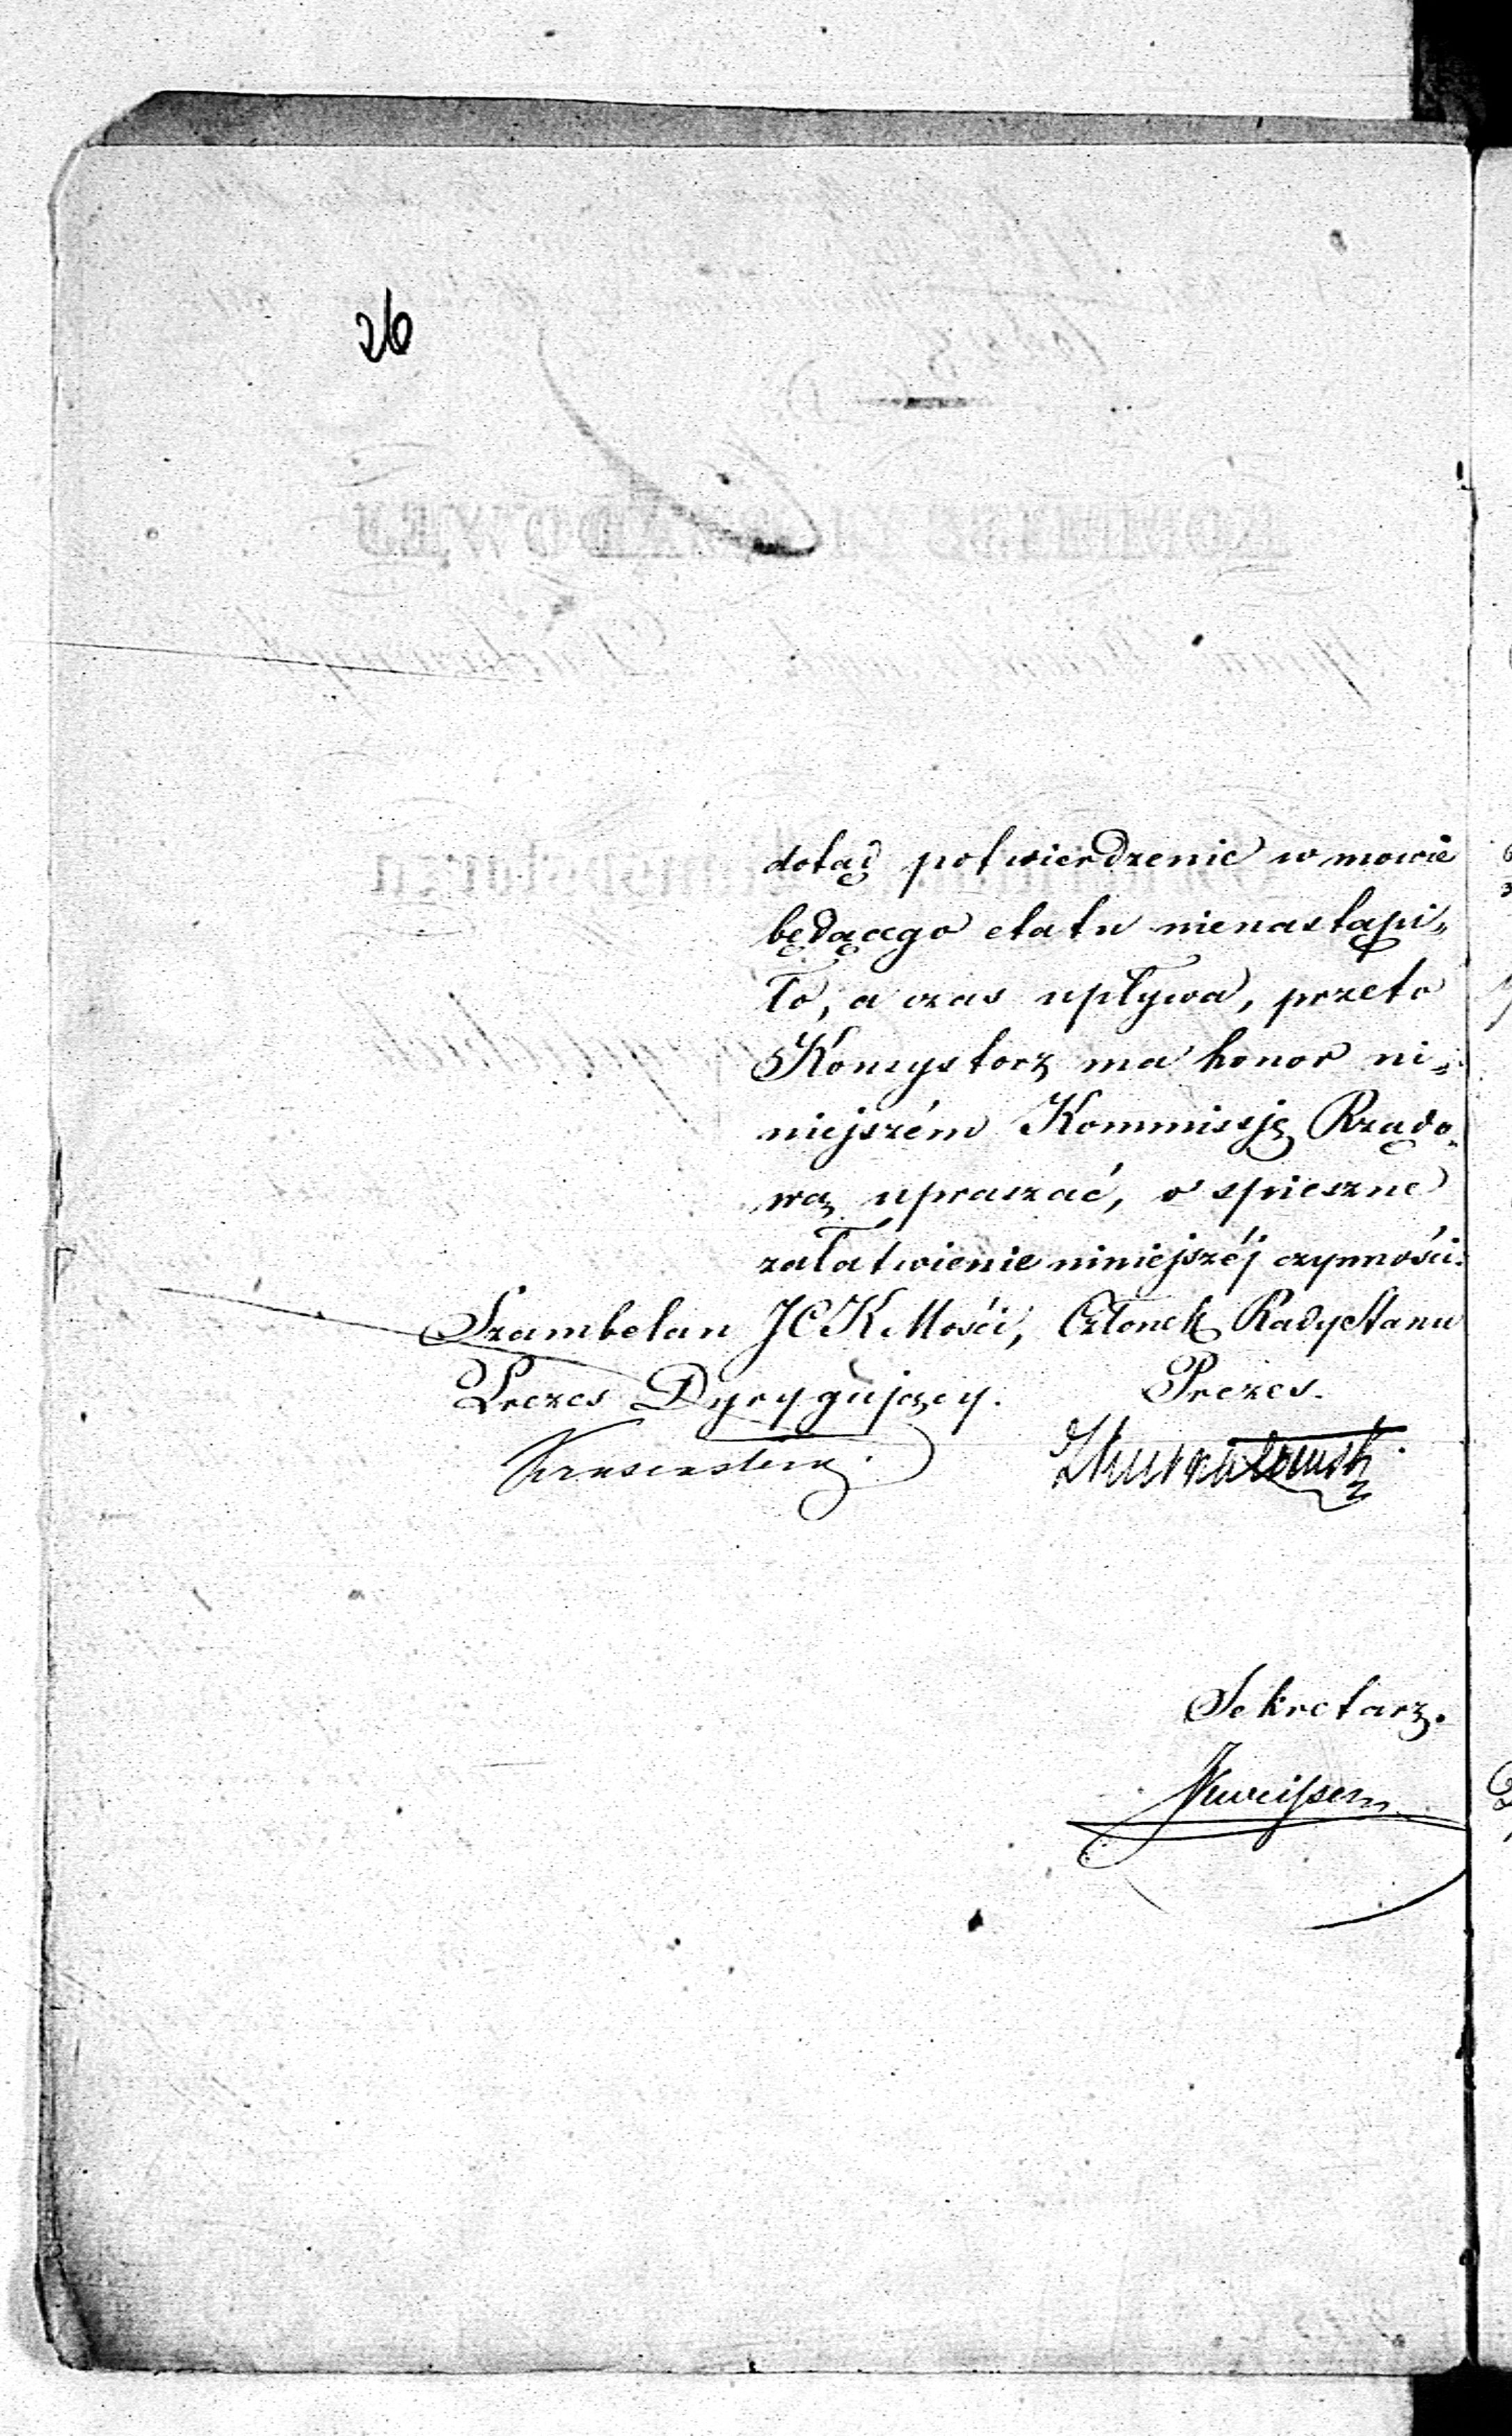 26
dotąd potwierdzenie w mowie
będącego etatu nienastąpi„
ło, a czas upływa, przeto
Konsystorz ma honor ni„
niejszém Kommissję Rządo„
wą upraszać, o spieszne
załatwienie niniejszéj czynności.
Szambelan JCKMości, Członek RadyStanu
Prezes Dyrygujący. Prezes.
Sekretarz.